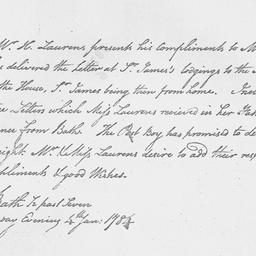 W. H. Laurens presents his compliments to M
delivered the letter at Jn. James's lodgings to the
the House, Jn. James being then from home.
Letters which Miss Laurens recieved in her
from Bath. The Post Boy has promised to de
night. Mr. & Miss Laurens desire to add their resp
pliments & good Wishes.
Bath ½ past Seven
day Evening 4th Jan: 178